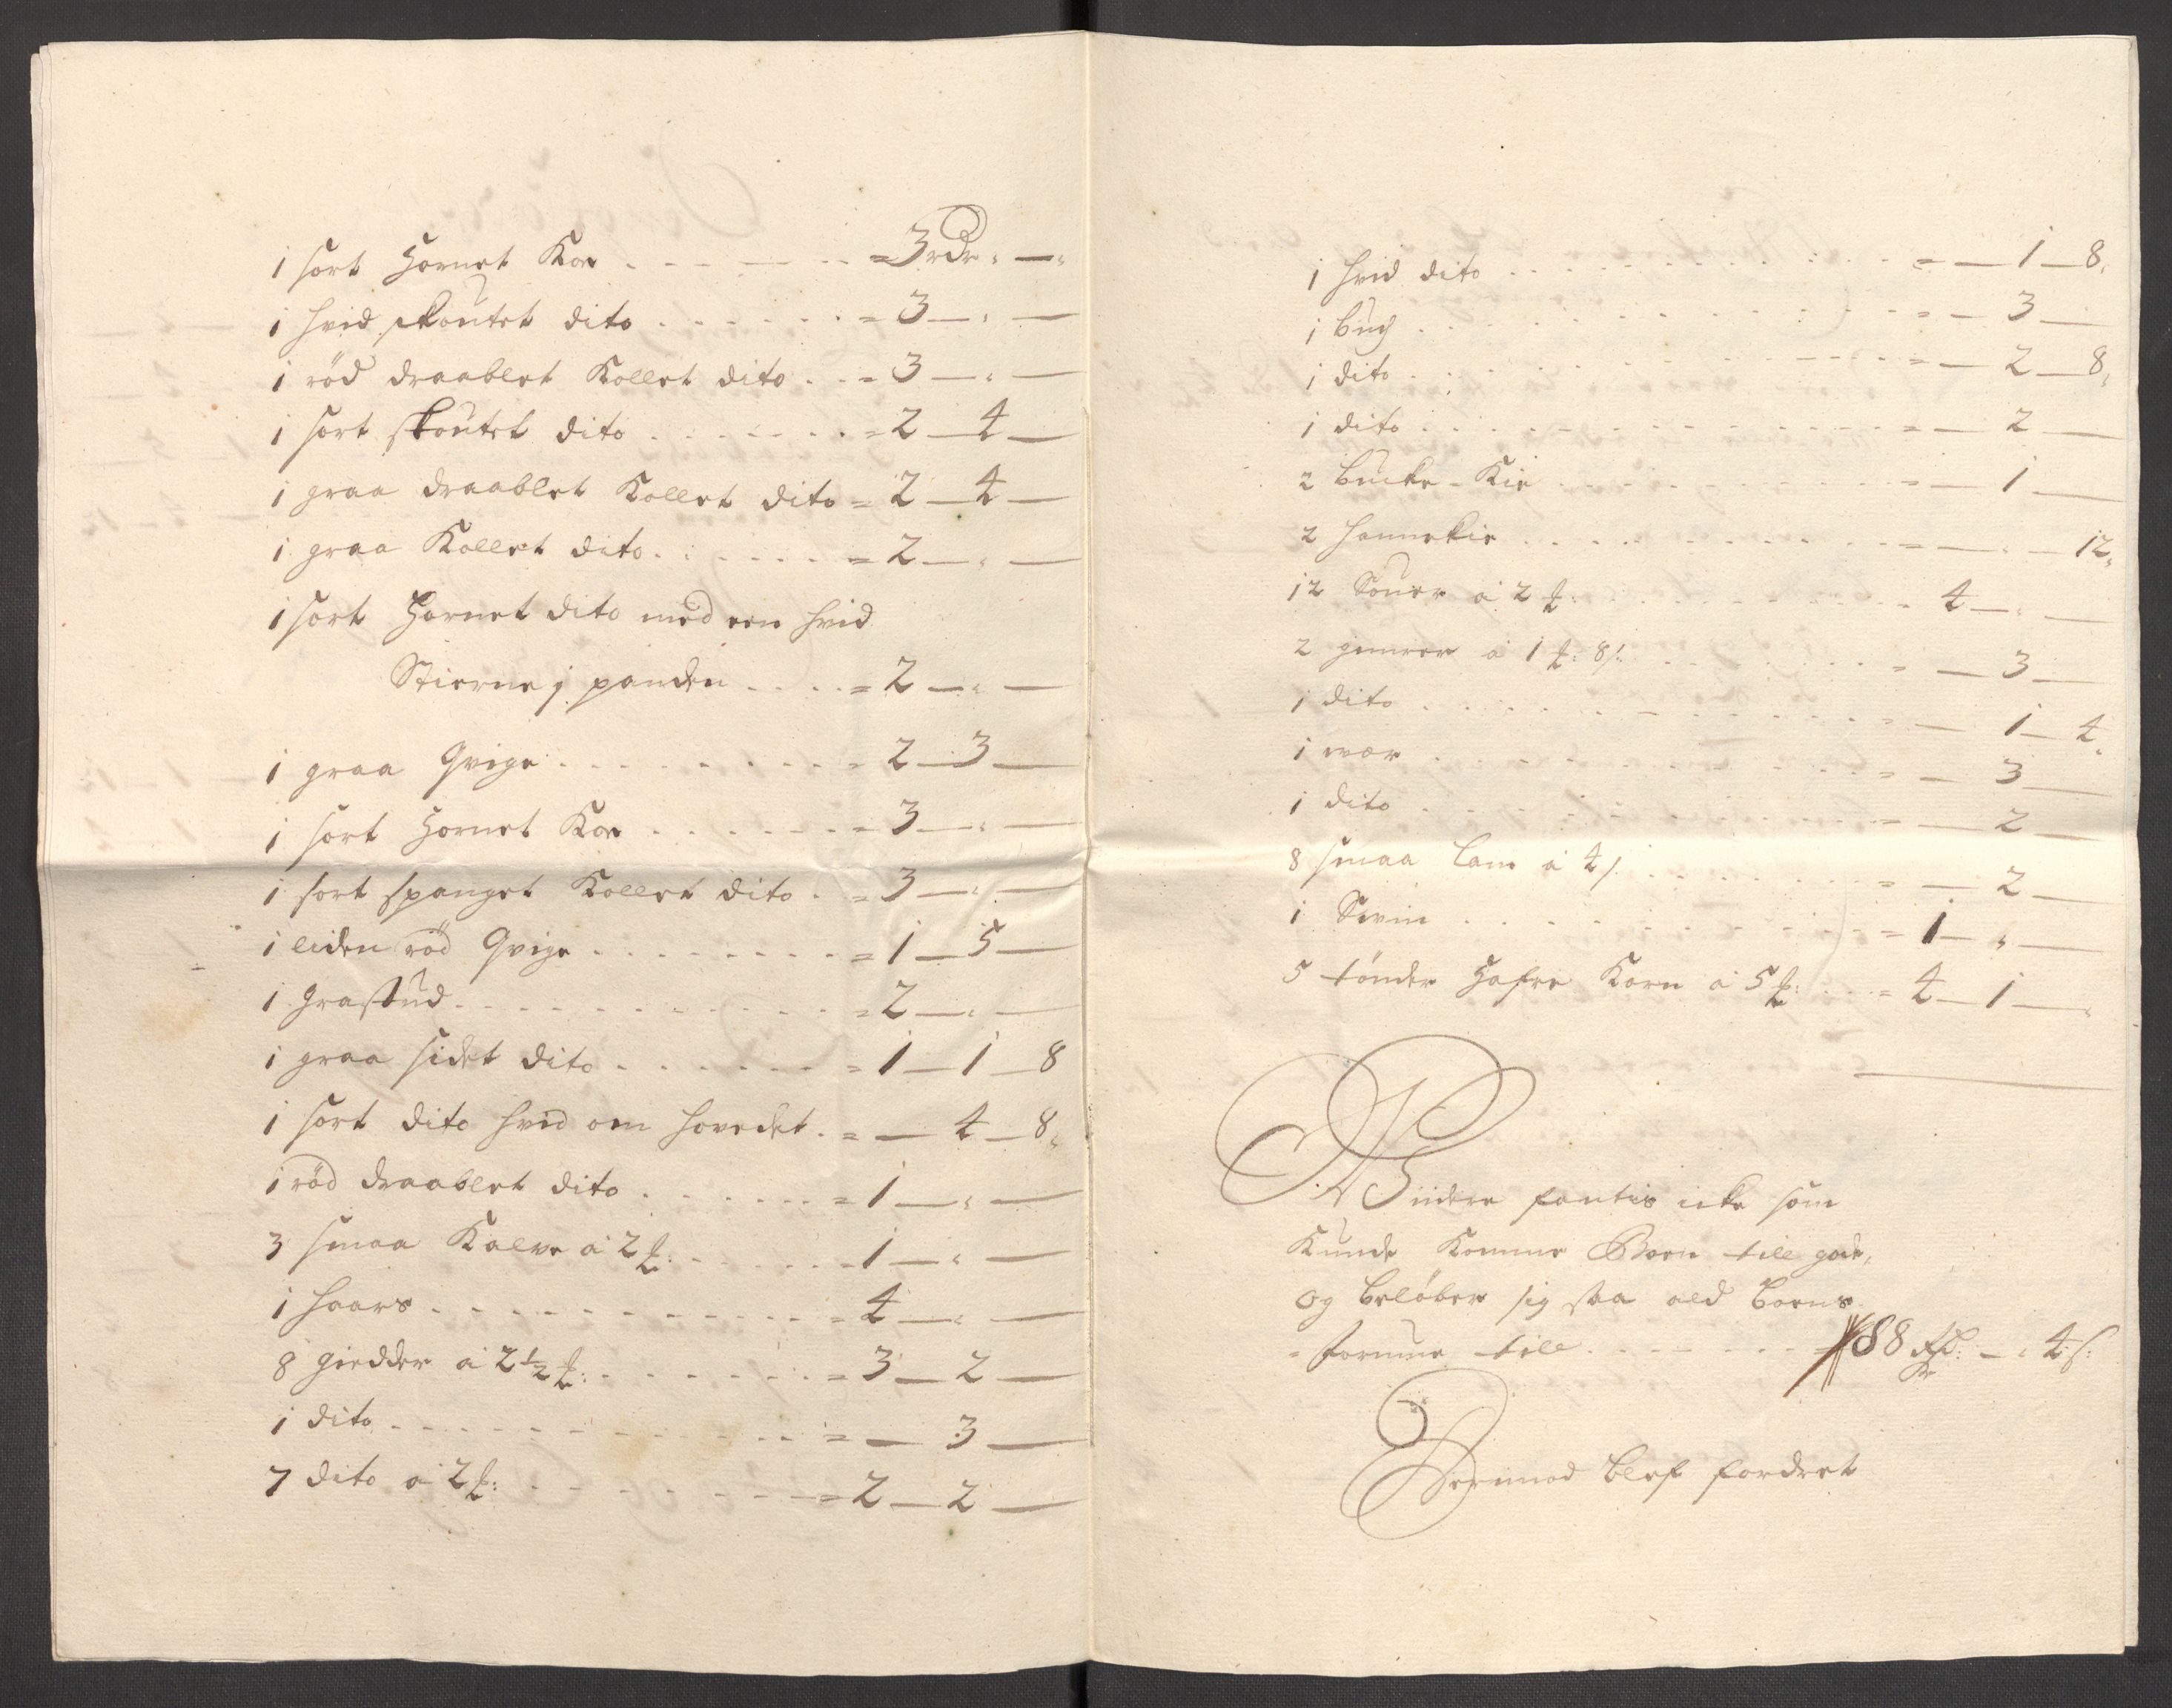 1 sort Hornet Koe . . . . . = 3 rdr " — "
1 hvid skoutet dito . . . . . . = 3 — " —
1 röd draablet Kollet dito . . = 3 — " —
1 sort skoutet dito . . . . . . = 2 — 4 —
1 graa draablet Kollet dito = 2 — 4 —
1 graa Kollet dito . . . . . . = 2 — " —
1 sort Hornet dito med een hvid
Stierne j panden . . . . = 2 — " —
1 graa Qvige . . . . . . . . = 2 — 3 —
1 sort Hornet Koe . . . . . . = 3 — " —
1 sort spanget Kollet dito . = 3 — " —
1 liden röd Qvige . . . . . . . = 1 — 5 —
1 Grastud . . . . . . . . . . = 2 — " —
1 graa sidet dito . . . . . . = 1 — 1 — 8
1 sort dito hvid om hovedet . = — 4 — 8 "
1 röd draablet dito . . . . . = 1 — " —
3 smaa Kalve a 2 ₶: . . . . . . 1 — " —
1 haars . . . . . . . . . . = 4 — " —
8 giedder a 2½ ₶: . . . . . . = 3 — 2 —
1 dito . . . . . . . . . . . = — 3 —
7 dito a 2 ₶: . . . . . . . . = 2 — 2 —
1 hvid dito . . . . . . . . . . = — 1 — 8 "
1 buch . . . . . . . . . . . = — 3 —
1 dito . . . . . . . . . . . = — 2 — 8 "
1 dito . . . . . . . . . . . = — 2 —
2 bucke-Kie . . . . . . . . . = — 1 —
2 hunnekie . . . . . . . . . = — " — 12 "
12 Souer a 2 ₶: . . . . . . . . 4 — " —
2 gimrer a 1 ₶: 8 s: . . . . . . = — 3 —
1 dito . . . . . . . . . . . = — 1 — 4 "
1 wær . . . . . . . . . . . = — 3 —
1 dito . . . . . . . . . . . = — 2 —
8 smaa lam a 4 s . . . . . . . = — 2 —
1 Swin . . . . . . . . . . . = 1 — " —
5 tönder Hafre Korn a 5 ₶: . . . = 4 — 1 — "
Videre fantis icke som
Kunde Komme Boen till gode,
og belöber sig saa ald boens
formue till . . . . . . . 88 rdr: — " 4 s:
Herimod blef fordret